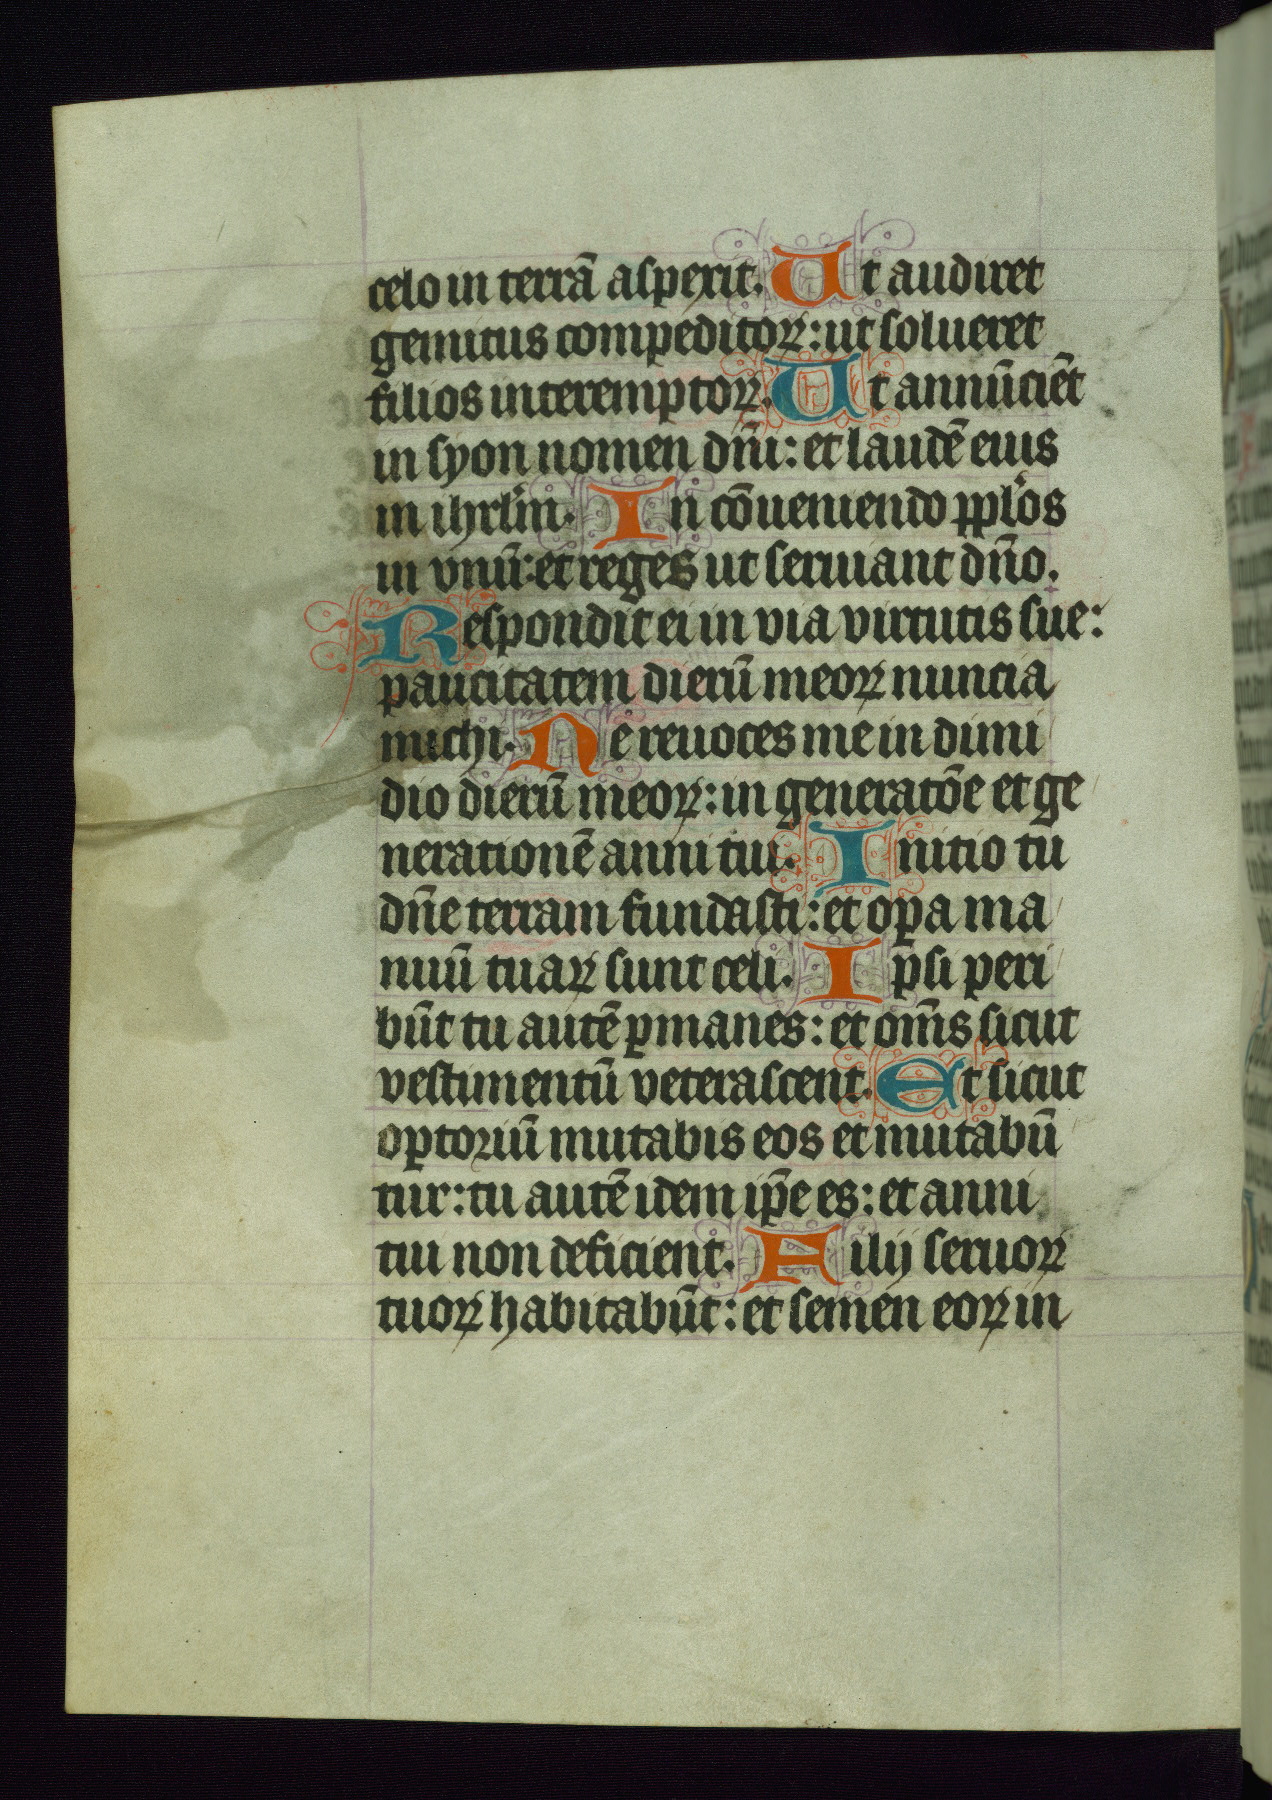 celo in terrā asperit. Ut audiret
gemitus compeditoꝝ: ut solueret
filios interemptoꝝ. Ut annūciēt
in syon nomen dn̄i: et laudē eius
in ihrlm̄. In cōueniendo ppl̓os
in vnū: et reges ut seruiant dn̄o.
Respondit ei in via virtutis sue:
paucitatem dierū meoꝝ nuncia
michi. Ne reuoces me in dimi
dio dierū meoꝝ: in generatōe et ge
nerationē anni tui. Initio tu
dn̄e terram fundasti: et oꝑa ma
nuū tuaꝝ sunt celi. Ip̄si peri
būt tu autē ꝑmanes: et om̄s sicut
vestimentū veterascent. Et sicut
oꝑtoriū mutabis eos et mutabū
tur: tu autē idem ip̄e es: et anni
tui non deficient. Filij seruoꝝ
tuoꝝ habitabūt: et semen eoꝝ in